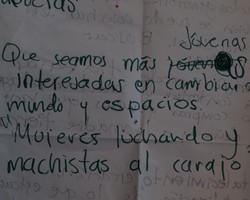 Jóvenas
Que seamos más
interesadas en cambiar
mundo y espacios.
"Mujeres luchando y
machistas al carajo